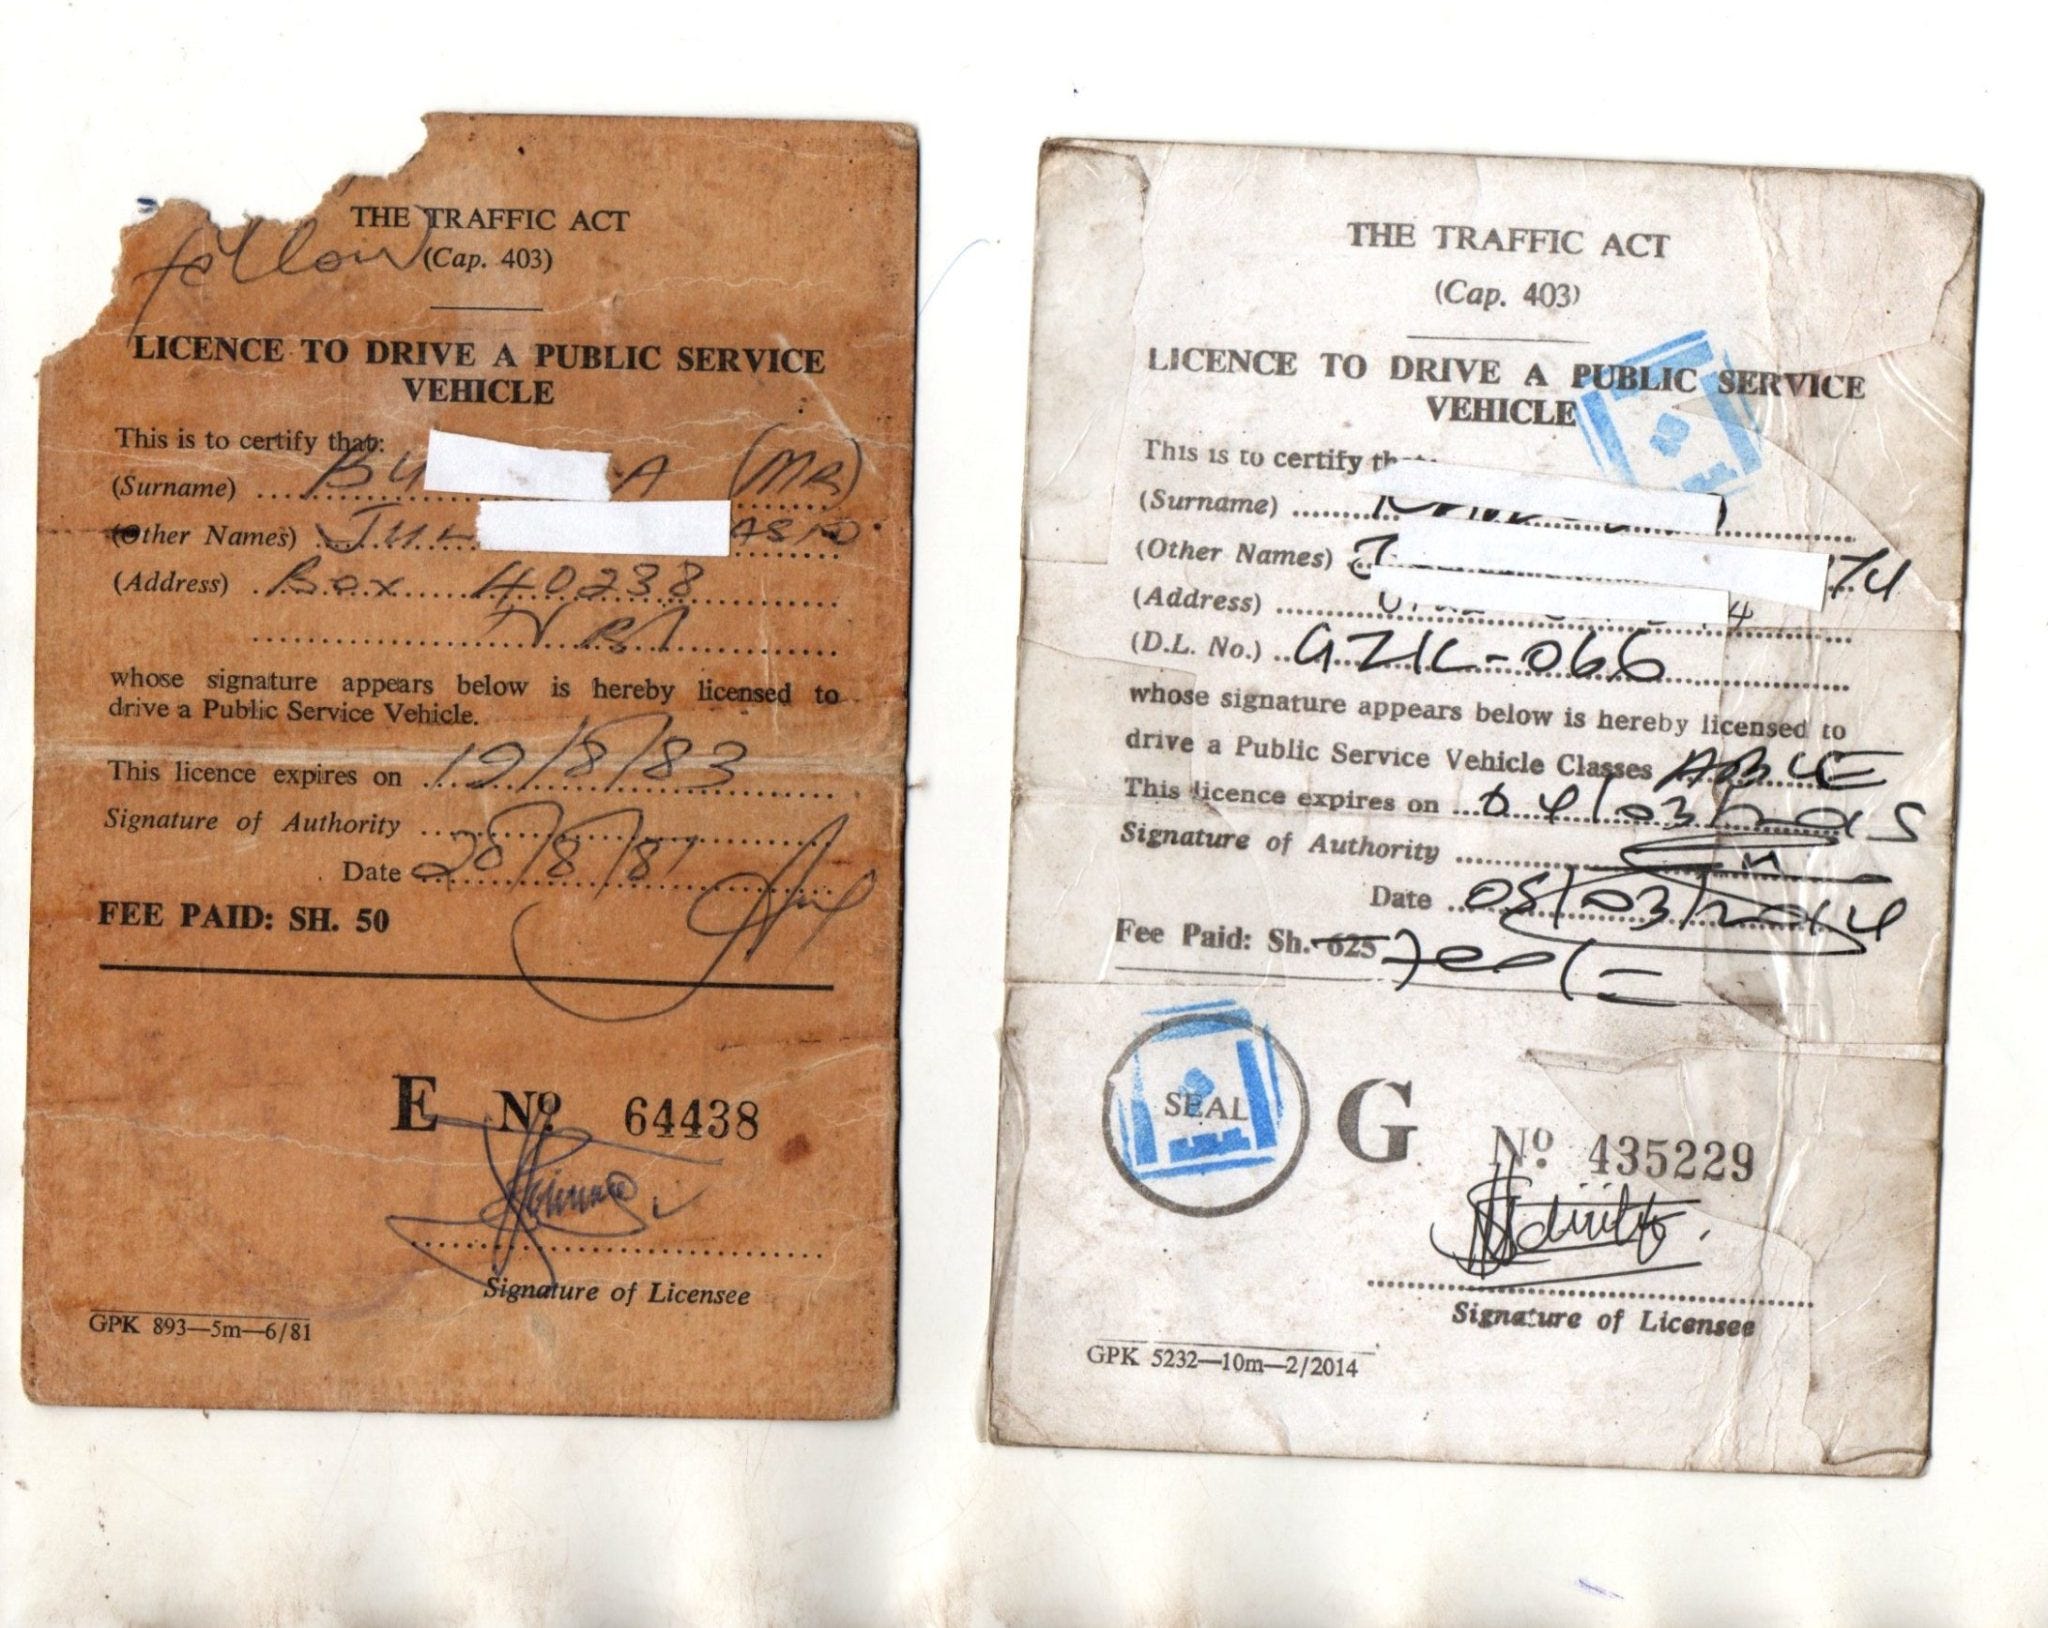 THE TRAFFIC ACT
(Cap. 403)
LICENCE TO DRIVE A PUBLIC SERVICE
VEHICLE
This is to certify that:
(Surname) BU A (MR)
(Other Names) JUL ASIO
(Address) Box 40238
NRB
whose signature appears below is hereby licensed to
drive a Public Service Vehicle.
This licence expires on 19/8/83
Signature of Authority
Date 20/8/81
FEE PAID: SH. 50
E No. 64438
Signature of Licensee
GPK 893—5m—6/81
THE TRAFFIC ACT
(Cap. 403)
LICENCE TO DRIVE A PUBLIC SERVICE
VEHICLE
This is to certify
(Surname)
(Other Names)
(Address)
(D.L. No.) GZK-066
whose signature appears below is hereby licensed to
drive a Public Service Vehicle Classes
This licence expires on 04/03/2015
Signature of Authority
Date 05/03/2014
Fee Paid: Sh. 625
SEAL
G No. 435229
Signature of Licensee
GPK 5232—10m—2/2014